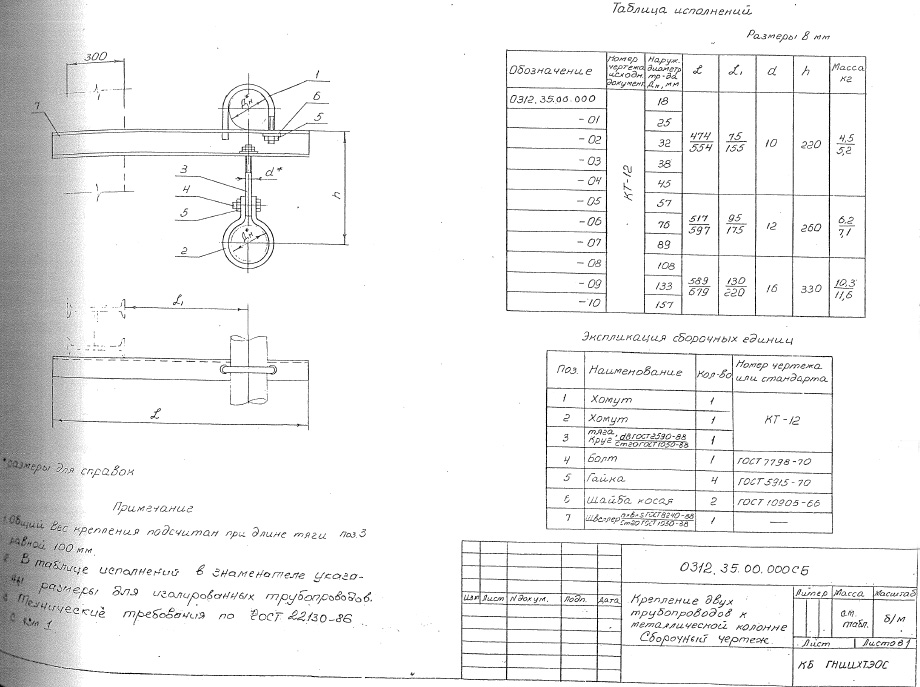 Таблица исполнений
Размеры в мм
Обозначение Номер чертежа исходн. документ Наруж. диаметр тр-да Дн, мм L L₁ d h Масса кг
0312.35.00.000 18
-01 25
-02 32 474/554 75/155 10 220 4,5/5,2
-03 38
-04 45
КТ-12
-05 57
-06 76 517/597 95/175 12 260 6,2/7,1
-07 89
-08 108
-09 133 589/679 130/220 16 330 10,3/11,6
-10 157
300
1
7
6
5
Дн
3
d*
4
h
5
2
Дн
L₁
L
Экспликация сборочных единиц
Поз. Наименование Кол-во Номер чертежа или стандарта
1 Хомут 1
КТ-12
2 Хомут 1
3 Тяга Круг dВ ГОСТ 2590-88/Ст20 ГОСТ 1050-88 1
4 Болт 1 ГОСТ 7798-70
5 Гайка 4 ГОСТ 5915-70
6 Шайба косая 2 ГОСТ 10906-66
7 Швеллер ГОСТ 8240-88/Ст20 ГОСТ 1050-88 1 —
*размеры для справок
Примечание
1. Общий вес крепления подсчитан при длине тяги поз.3
равной 100 мм.
2. В таблице исполнений в знаменателе указа-
ны размеры для изолированных трубопроводов.
3. Технические требования по ГОСТ 22130-86
0312.35.00.000СБ
Изм Лист N докум. Подп. Дата
Крепление двух
трубопроводов к
металлической колонне
Сборочный чертеж
Литер Масса Масштаб
см. табл. б/м
Лист Листов 1
КБ ГНИИХТЭОС